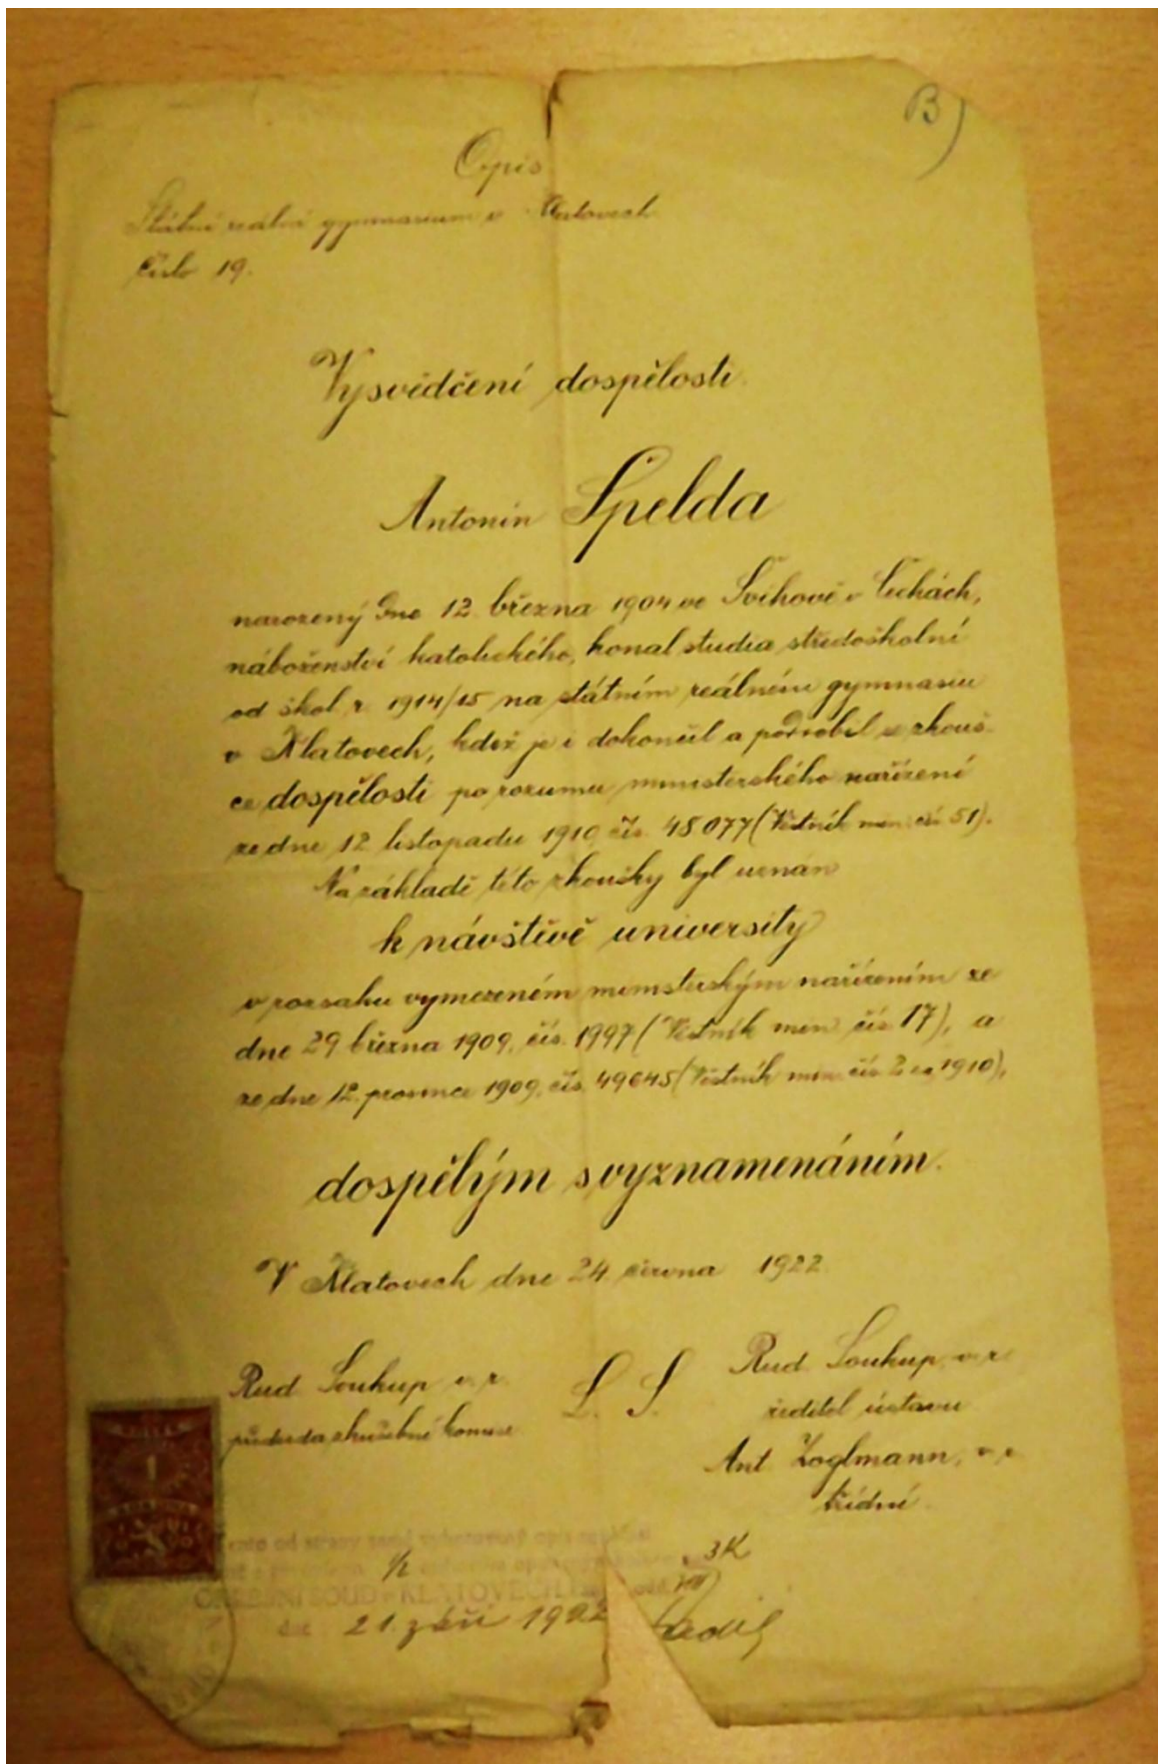 B)
Opis
Státní reálné gymnasium v Klatovech
Číslo 19.
Vysvědčení dospělosti.
Antonín Špelda
narozený dne 12. března 1904 ve Švihově v Čechách,
náboženství katolického, konal studia středoškolní
od škol. r. 1914/15 na státním reálném gymnasiu
v Klatovech, kdež je i dokončil a podrobil se zkouš-
ce dospělosti po rozumu ministerského nařízení
ze dne 12. listopadu 1910, čís. 48077 (Věstník min. čís. 51).
Na základě této zkoušky byl uznán
k návštěvě university
v rozsahu vymezeném ministerským nařízením ze
dne 29 března 1909, čís. 1997 (Věstník min. čís. 17), a
ze dne 12. prosince 1909, čís. 49645 (Věstník min. čís. 2 ex 1910),
dospělým s vyznamenáním.
V Klatovech dne 24. června 1922.
Rud. Soukup v. r.
předseda zkušební komise.
L. S.
Rud. Soukup, v. r.
ředitel ústavu
Ant. Zoglmann, v. r.
třídní.
1
Tento od strany opis
1/2
3K
OKRESNÍ SOUD v KLATOVECH
dne 21. září 1922